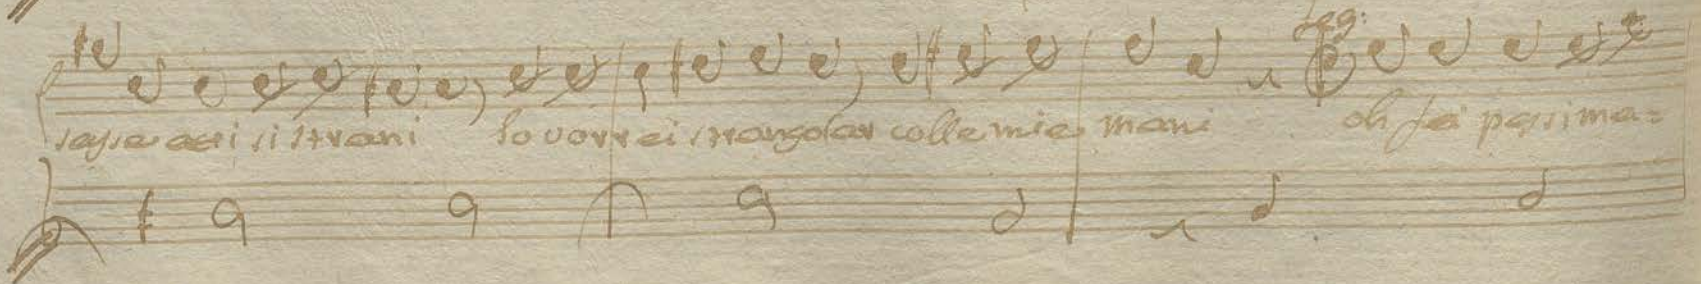 Leg:
sasse asti si strani lo vorrei strangolar colle mie mani oh sei pessima=